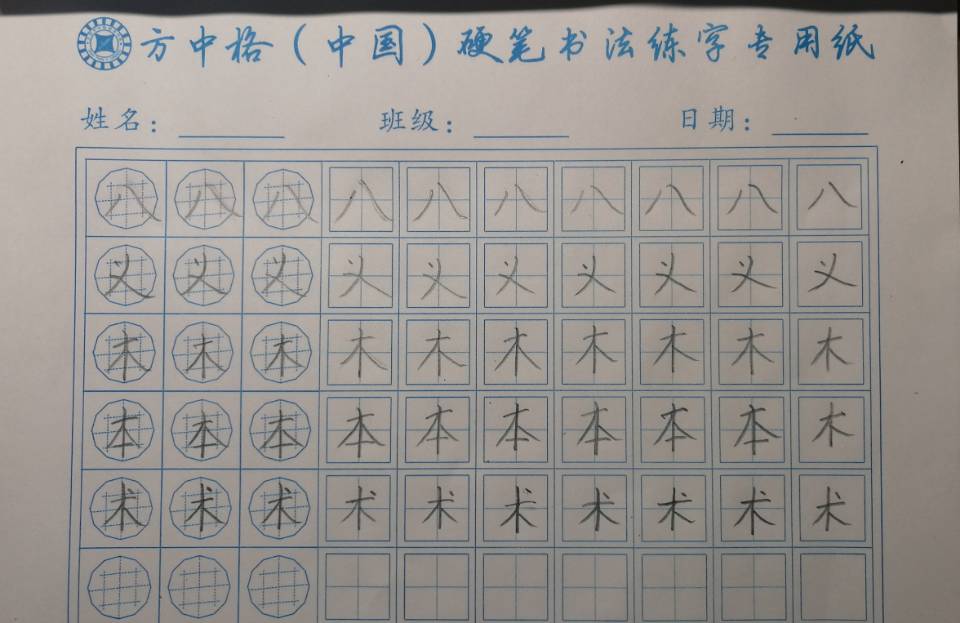 方中格（中国）硬笔书法练字专用纸
姓名： 班级： 日期：
八 八 八 八 八 八 八 八 八 八
义 义 义 义 义 义 义 义 义 义
木 木 木 木 木 木 木 木 木 木
本 本 本 本 本 本 本 本 本 木
术 术 术 术 术 术 术 术 术 术